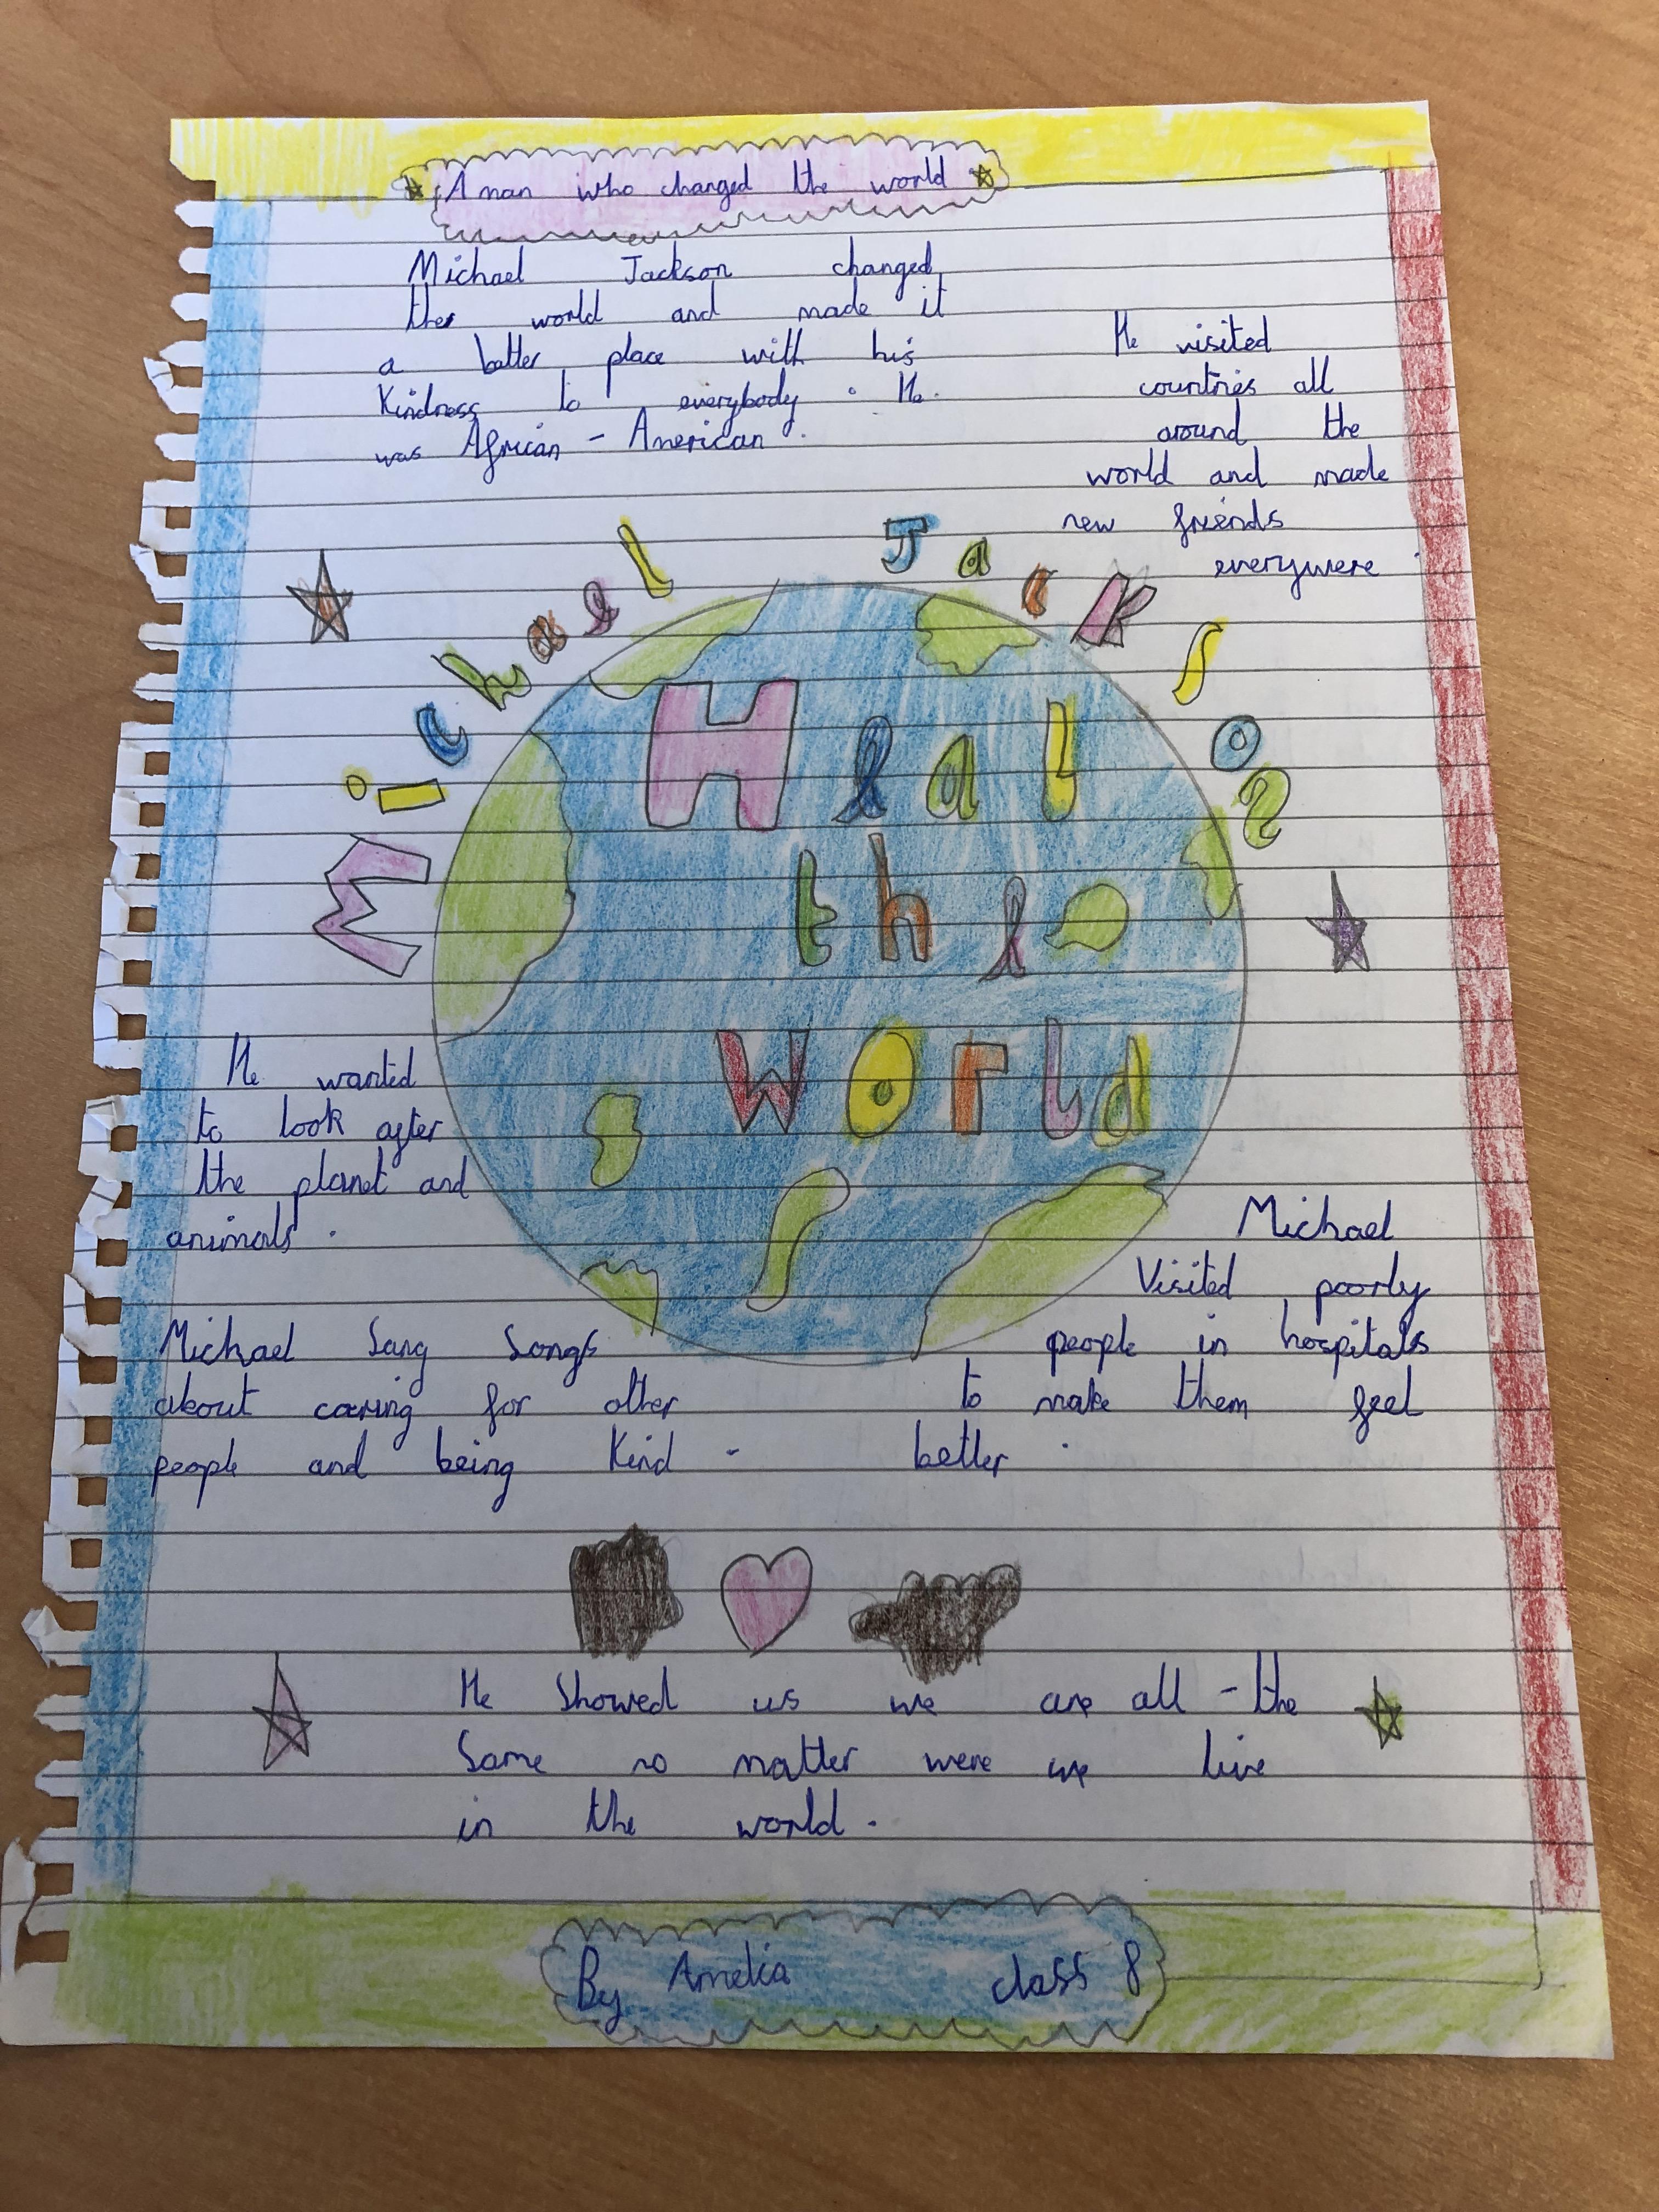 A man who changed the world
Michael Jackson changed
the world and made it
a better place with his
Kindness to everybody. He
was African-American.
He visited
countries all
around the
world and made
new friends
everywere
Michael Jackson
Heal
the
world
He wanted
to look after
the planet and
animals.
Michael Sang Songs
about caring for other
people and being Kind.
Michael
Visited poorly
people in hospitals
to make them feel
better.
He Showed us we are all - the
Same no matter were we live
in the world.
By Amelia class 8